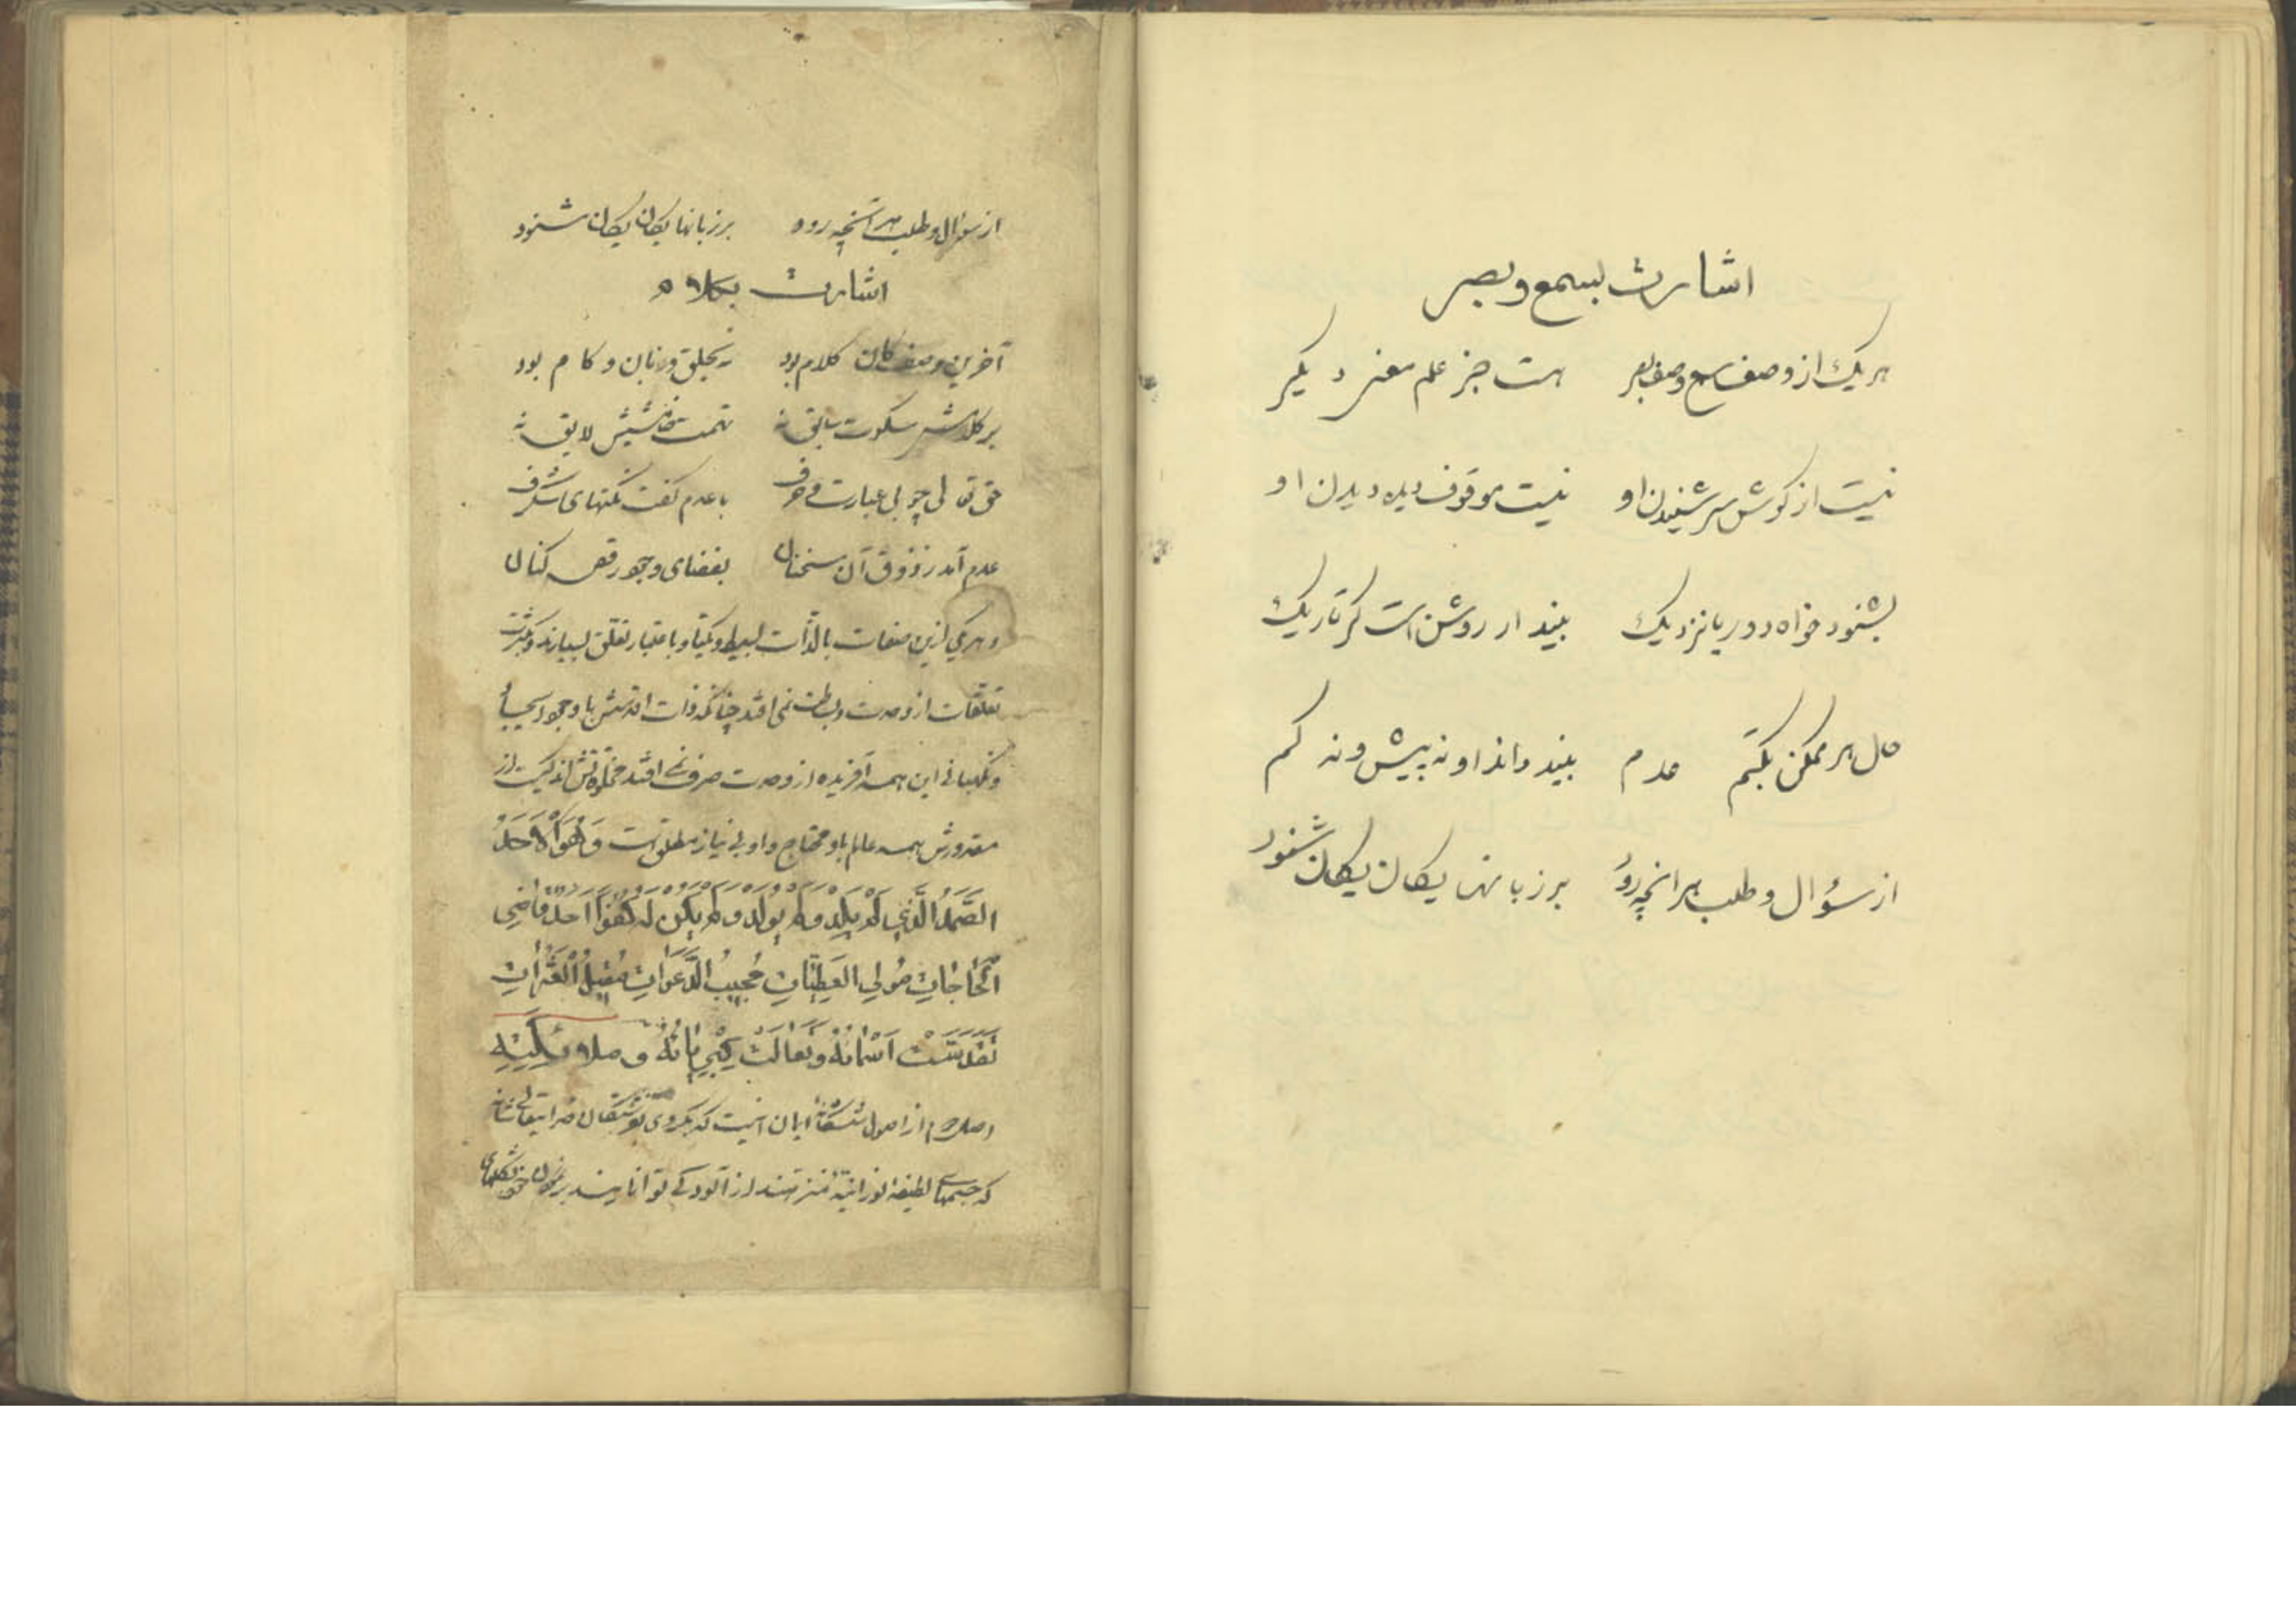 اشارت بسمع و بصر
هر یک از وصف سمع و وصف بصر هست جز علم معنی دیگر
نیست از گوش سر شنیدن او نیست موقوف دیده دیدن او
بشنود خواه دور یا نزدیک بیند ار روشن است گر تاریک
حال هر ممکن بکتم عدم بیند و داند او نه بیش و نه کم
از سؤال و طلب هر آنچه رود بر زبانها یکان یکان شنود
از سؤال و طلب هر آنچه رود بر زبانها یکان یکان شنود
اشارت بکلام
آخرین وصف کان کلام بود نه بحلق و زبان و کام بود
بر کلامش سکوت سابق نه تهمت خامشیش لایق نه
حق تعالی چو بی عبارت و حرف با عدم گفت نکتهای شگرف
عدم آمد ز ذوق آن سخنان بفضای وجود رقص کنان
و هر یکی ازین صفات بالذات بسیط و یکتا و باعتبار تعلق بسیارند و کثرت
تعلقات از وحدت و بساطت نمی افتد چنانکه ذات اقدسش با وجود
و نگهبانی این همه آفریده از وحدت صرف نمی افتد
مقدورش همه عالم باو محتاج و او بی نیاز مطلق است وَهُوَ الْاَحَدُ
الصَّمَدُ الَّذِي لَمْ يَلِدْ وَلَمْ يُولَدْ وَلَمْ يَكُنْ لَهُ كُفُوًا اَحَدٌ قَاضِي
الْحَاجَاتِ مُولِي الْعَطِيَّاتِ مُجِيبُ الدَّعَوَاتِ مُقِيلُ الْعَثَرَاتِ
تَقَدَّسَتْ اَسْمَائُهُ وَتَعَالَتْ كِبْرِيَائُهُ وَمَلَائِكَتِهِ
اصل دوم از اصول ششگانه ایمان اینست که بگروی بفرشتگان خدایتعالی شانه
که جسمهای لطیفه نورانیه منزهند از آلودگی توانایند بر نمودن خود بشکلهای